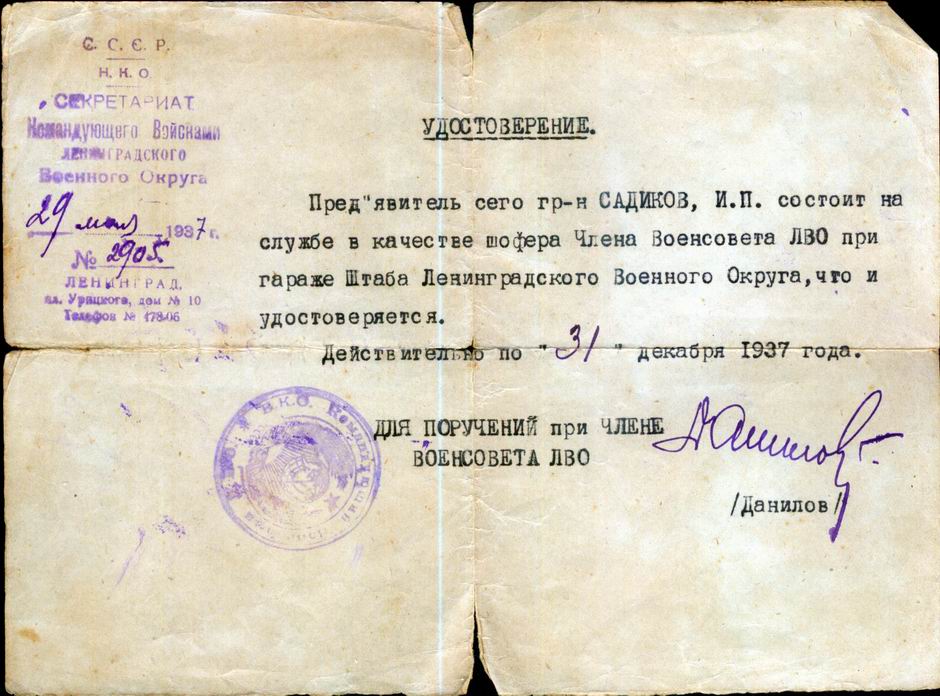 С. С. С. Р.
Н. К. О.
СЕКРЕТАРИАТ
Командующего Войсками
ЛЕНИНГРАДСКОГО
Военного Округа
29 мая 1937 г.
№ 2905
ЛЕНИНГРАД,
пл. Урицкого, дом № 10
Телефон № 178-06
УДОСТОВЕРЕНИЕ.
Пред"явитель сего гр-н САДИКОВ, И.П. состоит на
службе в качестве шофера Члена Военсовета ЛВО при
гараже Штаба Ленинградского Военного Округа, что и
удостоверяется.
Действительно по "31" декабря 1937 года.
ДЛЯ ПОРУЧЕНИЙ при ЧЛЕНЕ
ВОЕНСОВЕТА ЛВО
Данилов
/Данилов/